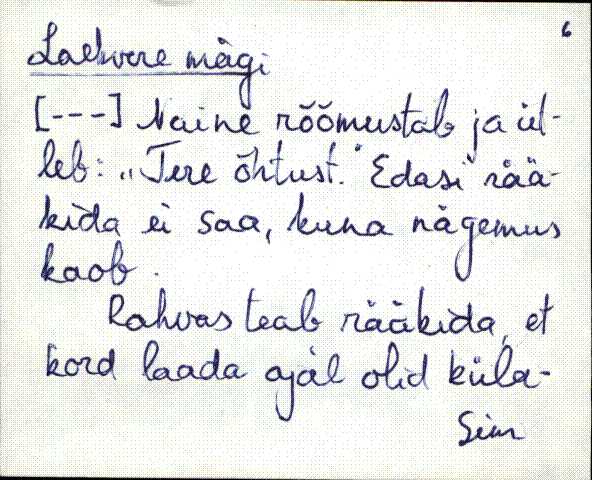 6
Laekvere mägi
[---] Naine rõõmustab ja üt-
leb: „Tere õhtust." Edasi rää-
kida ei saa, kuna nägemus
kaob.
Rahvas teab rääkida, et
kord laada ajal olid küla-